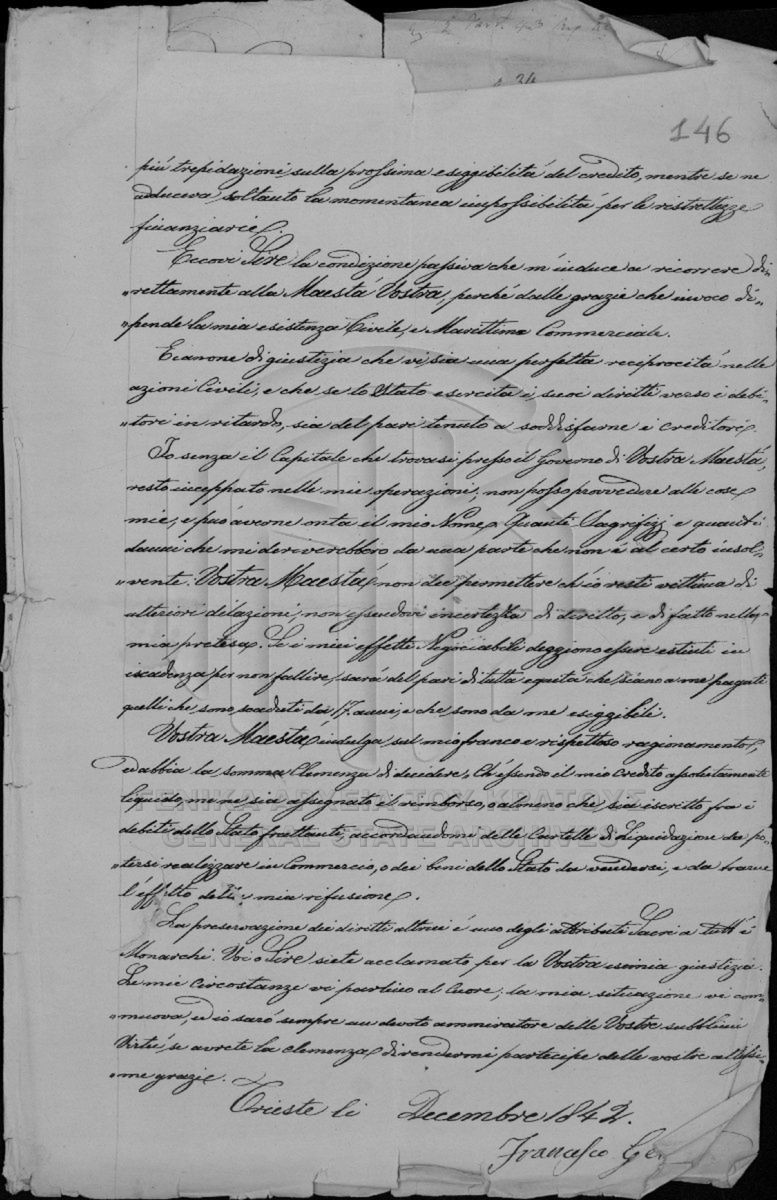 146
più trepidazioni sulla prossima esiggibilità del credito, mentre se ne
adduceva soltanto la momentanea impossibilità per le ristrettezze
finanziarie.
Eccovi Sire la condizione passiva che m'induce a ricorrere di-
"rettamente alla Maestà Vostra, perché dalle grazie che invoco di-
"pende la mia esistenza Civile, e Marittima Commerciale.
È canone di giustizia che vi sia una perfetta reciprocità nelle
azioni Civili, e che se lo Stato esercita i suoi diritti verso i debi-
"tori in ritardo, sia del pari tenuto a soddisfarne i creditori.
Io senza il Capitale che trovasi presso il Governo di Vostra Maestà,
resto inceppato nelle mie operazioni, non posso provvedere alle cose
mie, e può averne onta il mio Nome. Quanti Sagrifizj e quanti
danni che mi deriverebbero da una parte che non è al certo insol-
"vente. Vostra Maestà non dee permettere ch'io resti vittima di
ulteriori dilazioni, non essendovi incertezza di diritto, e di fatto nella
mia pretesa. Se i miei effetti Negoziabili deggiono essere estinti in
iscadenza per non fallire, sarà del pari di tutta equità che siano a me pagati
quelli che sono scaduti da 17 anni, e che sono da me esiggibili.
Vostra Maestà indulga sul mio franco e rispettoso ragionamento,
ed abbia la somma Clemenza di decidere, ch'essendo il mio Credito assolutamente
liquido, me ne sia assegnato il rimborso, o almeno che sia iscritto fra i
debiti dello Stato frattanto, accordandomi delle Cartelle di Liquidazione da po-
tersi realizzare in Commercio, o dei beni dello Stato da vendersi, e da trarne
l'effetto della mia rifusione.
La preservazione dei diritti altrui è uno degli attributi Sacri a tutti i
Monarchi. Voi o Sire siete acclamato per la Vostra esimia giustizia.
Le mie circostanze vi parlino al Cuore, la mia situazione vi com-
"muova, ed io sarò sempre un devoto ammiratore delle Vostre sublimi
Virtù, se avrete la clemenza di rendermi partecipe delle vostre altissi-
"me grazie.
Trieste li Decembre 1842.
Francesco
ΓΕΝΙΚΑ ΑΡΧΕΙΑ ΤΟΥ ΚΡΑΤΟΥΣ
GENERAL STATE ARCHIVES